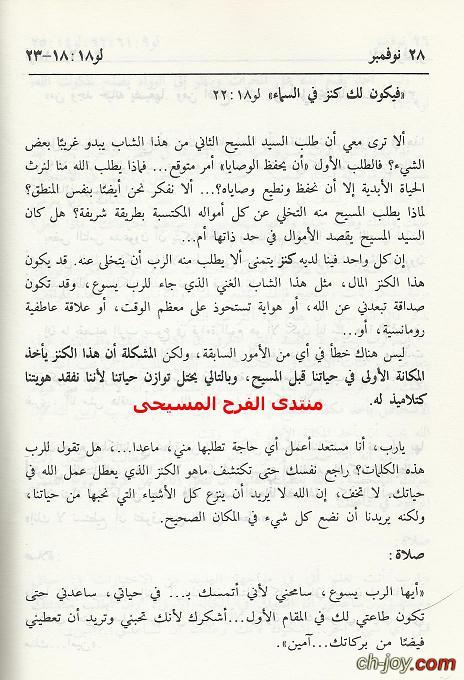 ٢٨ نوفمبر
لو١٨:١٨-٢٣
«فيكون لك كنز في السماء» لو١٨:٢٢
ألا ترى معي أن طلب السيد المسيح الثاني من هذا الشاب يبدو غريبًا بعض
الشيء؟ فالطلب الأول «أن يحفظ الوصايا» أمر متوقع... فماذا يطلب الله منا لنرث
الحياة الأبدية إلا أن نحفظ ونطيع وصاياه؟... ألا نفكر نحن أيضًا بنفس المنطق؟
لماذا يطلب المسيح منه التخلي عن كل أمواله المكتسبة بطريقة شريفة؟ هل كان
السيد المسيح يقصد الأموال في حد ذاتها أم...
إن كل واحد فينا لديه كنز يتمنى ألا يطلب منه الرب أن يتخلى عنه. قد يكون
هذا الكنز المال، مثل هذا الشاب الغني الذي جاء للرب يسوع، وقد تكون
صداقة تبعدني عن الله، أو هواية تستحوذ على معظم الوقت، أو علاقة عاطفية
رومانسية، أو...
ليس هناك خطأ في أي من الأمور السابقة، ولكن المشكلة أن هذا الكنز يأخذ
المكانة الأولى في حياتنا قبل المسيح، وبالتالي يختل توازن حياتنا لأننا نفقد هويتنا
كتلاميذ له.
منتدى الفرح المسيحى
يارب، أنا مستعد أعمل أي حاجة تطلبها مني، ماعدا...، هل تقول للرب
هذه الكلمات؟ راجع نفسك حتى تكتشف ماهو الكنز الذي يعطل عمل الله في
حياتك. لا تخف، إن الله لا يريد أن ينزع كل الأشياء التي نحبها من حياتنا،
ولكنه يريدنا أن نضع كل شيء في المكان الصحيح.
صلاة:
«أيها الرب يسوع، سامحني لأني أتمسك بـ... في حياتي، ساعدني حتى
تكون طاعتي لك في المقام الأول...أشكرك لأنك تحبني وتريد أن تعطيني
فيضًا من بركاتك...آمين».
ch-joy.com